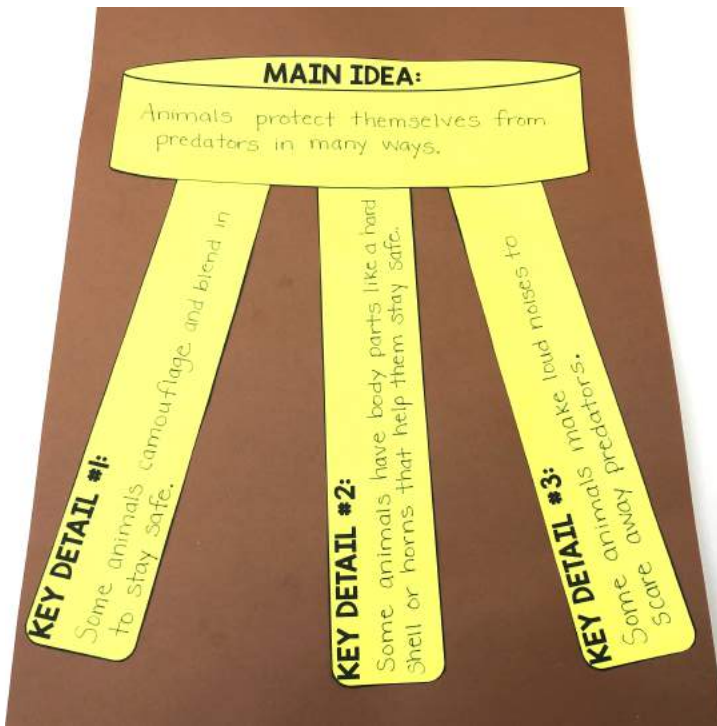 MAIN IDEA:
Animals protect themselves from
predators in many ways.
KEY DETAIL #1:
Some animals camouflage and blend in
to stay safe.
KEY DETAIL #2:
Some animals have body parts like a hard
shell or horns that help them stay safe.
KEY DETAIL #3:
Some animals make loud noises to
scare away predators.